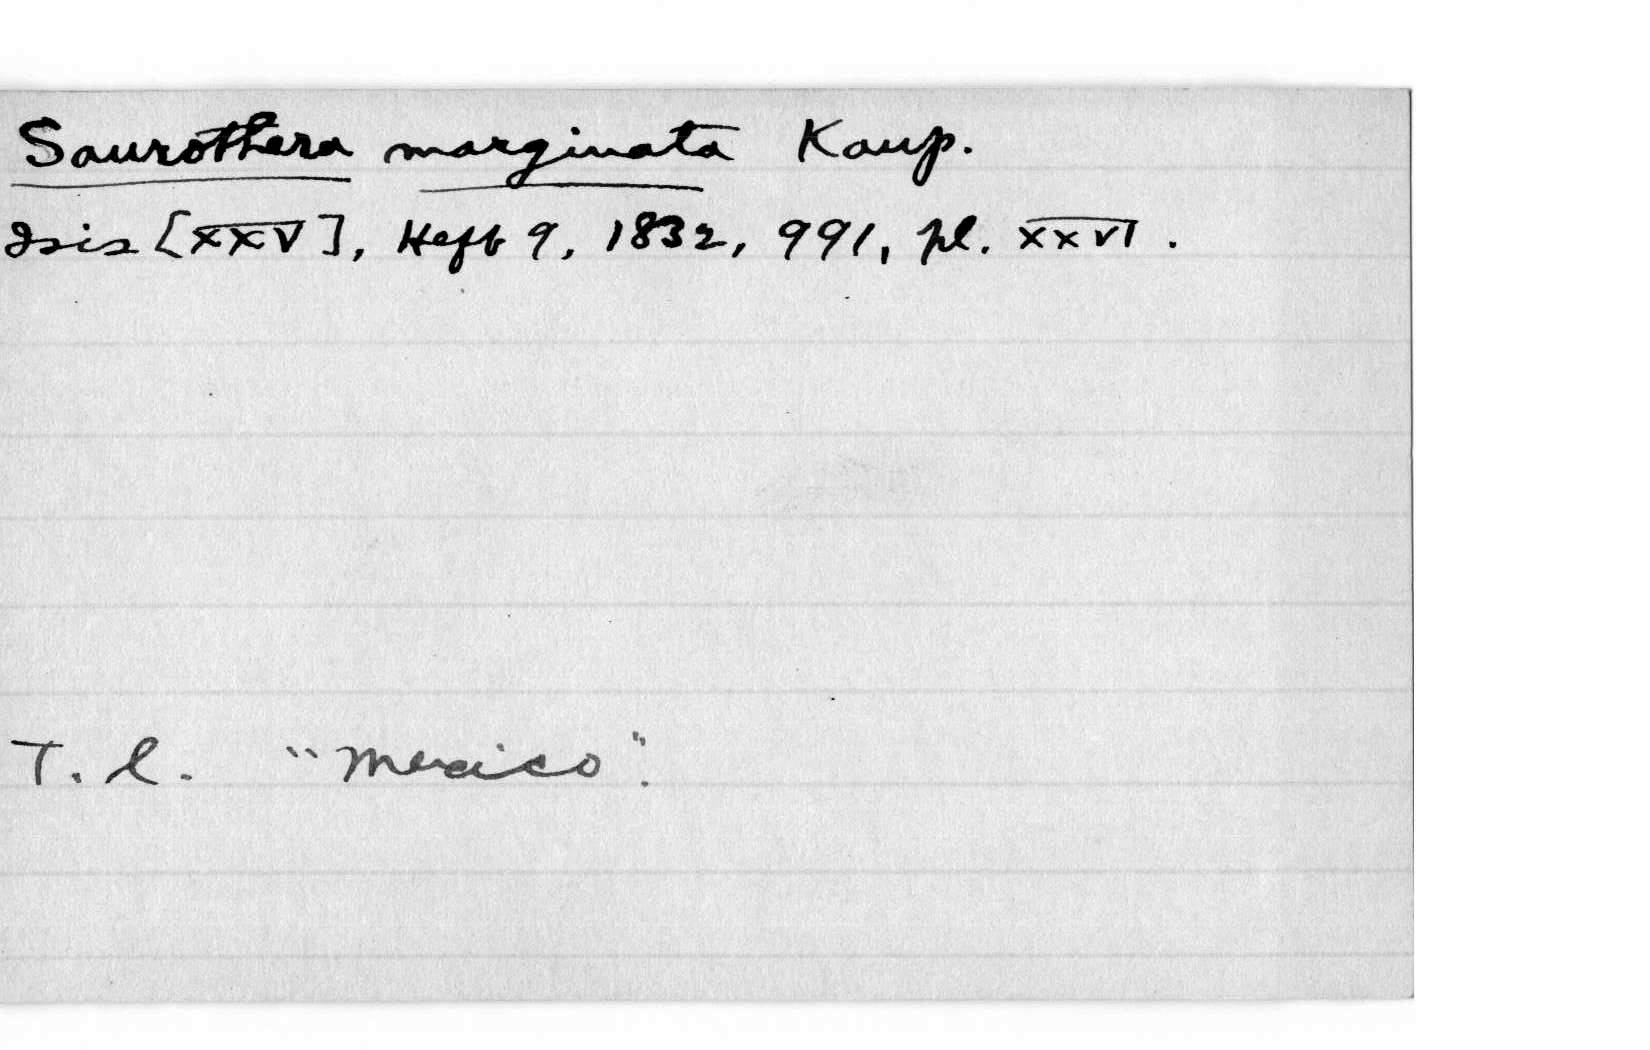 Saurothera marginata Kaup.
Isis [XXV], Heft 9, 1832, 991, pl. XXVI.
T. l. "Mexico".